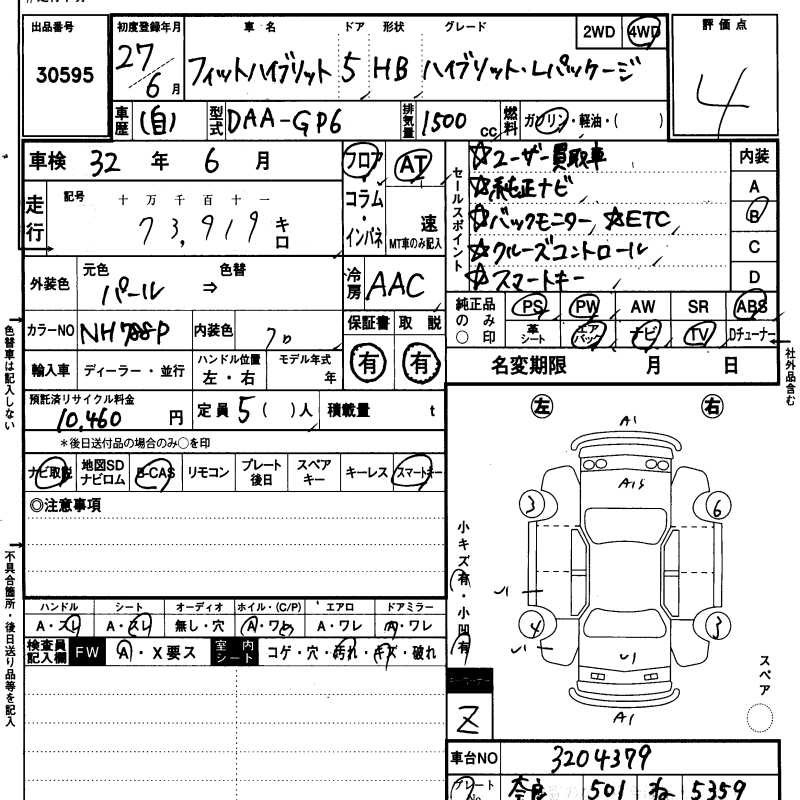 出品番号
30595
初度登録年月
27/6月
車名 ドア 形状 グレード
フィットハイブリット 5 HB ハイブリット・Lパッケージ
2WD 4WD
評価点
4
車歴 (自) 型式 DAA-GP6 排気量 1500 cc 燃料 ガソリン・軽油・( )
車検 32 年 6 月
走行 記号 十 万 千 百 十 一
73,919 キロ
フロア・コラム・インパネ
AT
速
MT車のみ記入
セールスポイント
☆ユーザー買取車
☆純正ナビ
☆バックモニター ☆ETC
☆クルーズコントロール
☆スマートキー
内装
A
B
C
D
外装色 元色 パール ⇒ 色替
冷房 AAC
カラーNO NH788P 内装色
保証書 有 取説 有
純正品のみ○印
PS PW AW SR ABS
革シート エアバック ナビ TV Dチューナー
輸入車 ディーラー・並行 ハンドル位置 左・右 モデル年式 年
名変期限 月 日
預託済リサイクル料金 10,460 円 定員 5 ( )人 積載量 t
*後日送付品の場合のみ○を印
ナビ取説 地図SDナビロム B-CAS リモコン プレート後日 スペアキー キーレス スマートキー
◎注意事項
色替車は記入しない
不具合箇所・後日送り品等を記入
社外品含む
左 右
A1
A1S
3 6
4 3
U1
A1
小キズ有・小凹有
スペア
ハンドル シート オーディオ ホイル・(C/P) エアロ ドアミラー
A・スレ A・スレ 無し・穴 A・ワレ A・ワレ A・ワレ
検査員記入欄 FW A・X要ス 室内シート コゲ・穴・汚れ・キズ・破れ
Z
車台NO 3204379
プレートNo 奈良 501 ね 5359